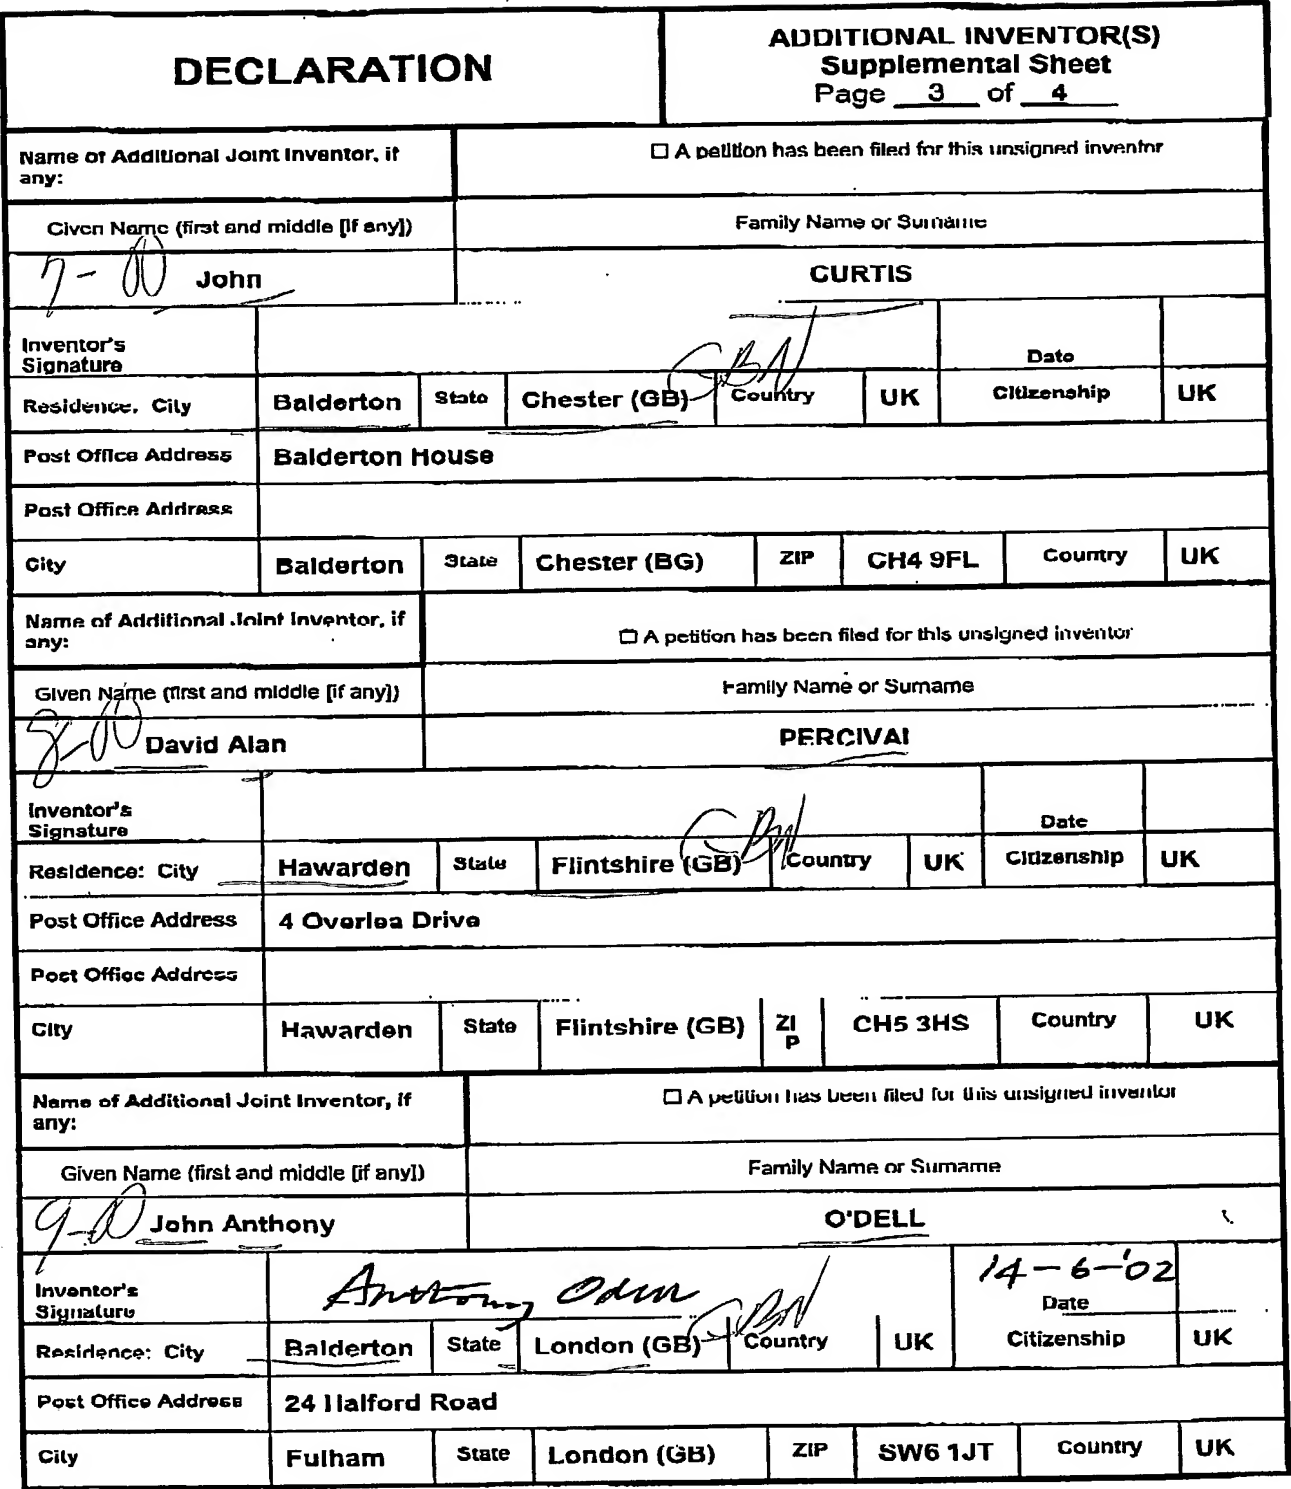 DECLARATION
ADDITIONAL INVENTOR(S)
Supplemental Sheet
Page 3 of 4
Name of Additional Joint Inventor, if any:
☐ A petition has been filed for this unsigned inventor
Given Name (first and middle [if any])
Family Name or Surname
7-00 John
CURTIS
Inventor's Signature
Date
GBN
Residence, City Balderton State Chester (GB) Country UK Citizenship UK
Post Office Address Balderton House
Post Office Address
City Balderton State Chester (BG) ZIP CH4 9FL Country UK
Name of Additional Joint Inventor, if any:
☐ A petition has been filed for this unsigned inventor
Given Name (first and middle [if any])
Family Name or Surname
8-00 David Alan
PERCIVAL
Inventor's Signature
Date
GBN
Residence: City Hawarden State Flintshire (GB) Country UK Citizenship UK
Post Office Address 4 Overlea Drive
Post Office Address
City Hawarden State Flintshire (GB) ZIP CH5 3HS Country UK
Name of Additional Joint Inventor, if any:
☐ A petition has been filed for this unsigned inventor
Given Name (first and middle [if any])
Family Name or Surname
9-00 John Anthony
O'DELL
Inventor's Signature Anthony Odell 14-6-'02
Date
GBN
Residence: City Balderton State London (GB) Country UK Citizenship UK
Post Office Address 24 Halford Road
City Fulham State London (GB) ZIP SW6 1JT Country UK